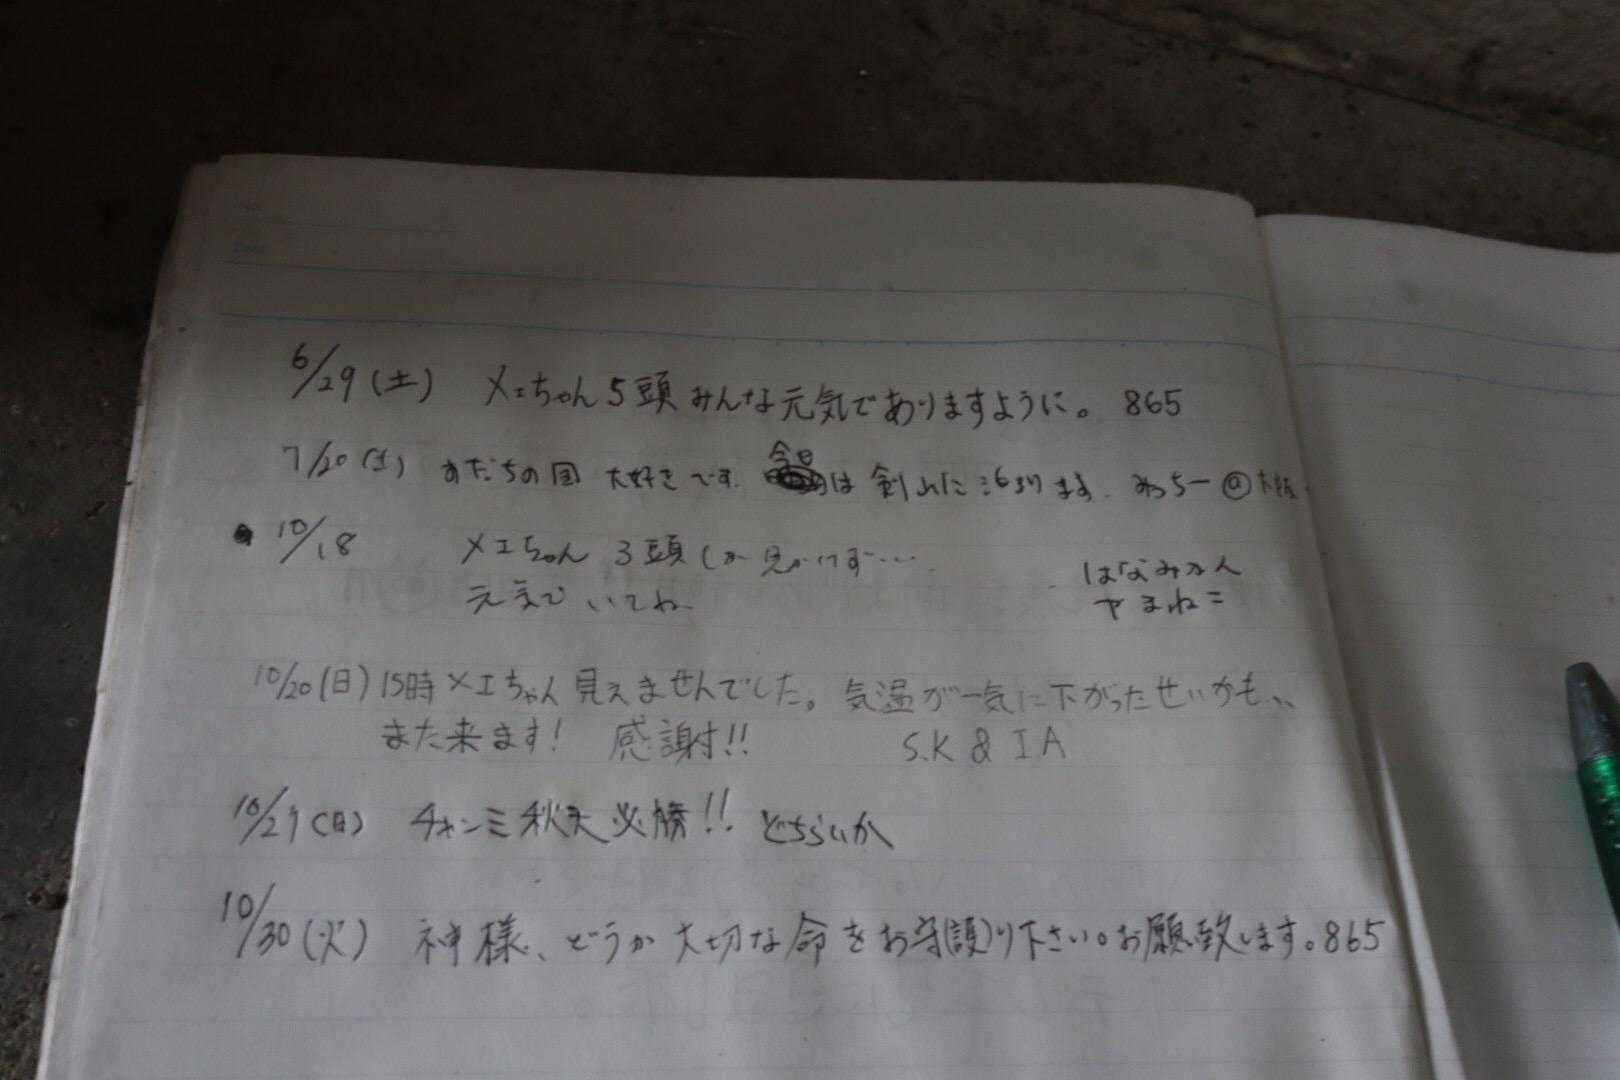 6/29(土) メェちゃん5頭みんな元気でありますように。 865
今日
7/20(土) 大好きです は 剣山に泊まります みっちー@大阪
10/18 メエちゃん 3頭しか見かけず…
はなみかん
元気でいてね
やまねこ
10/20(日)15時メエちゃん見えませんでした。気温が一気に下がったせいかも、、
また来ます! 感謝!! S.K & I A
(日) チャンミ 必勝!!
10/30(火) 神様、どうか大切な命をお守(護)り下さい。お願い致します。865